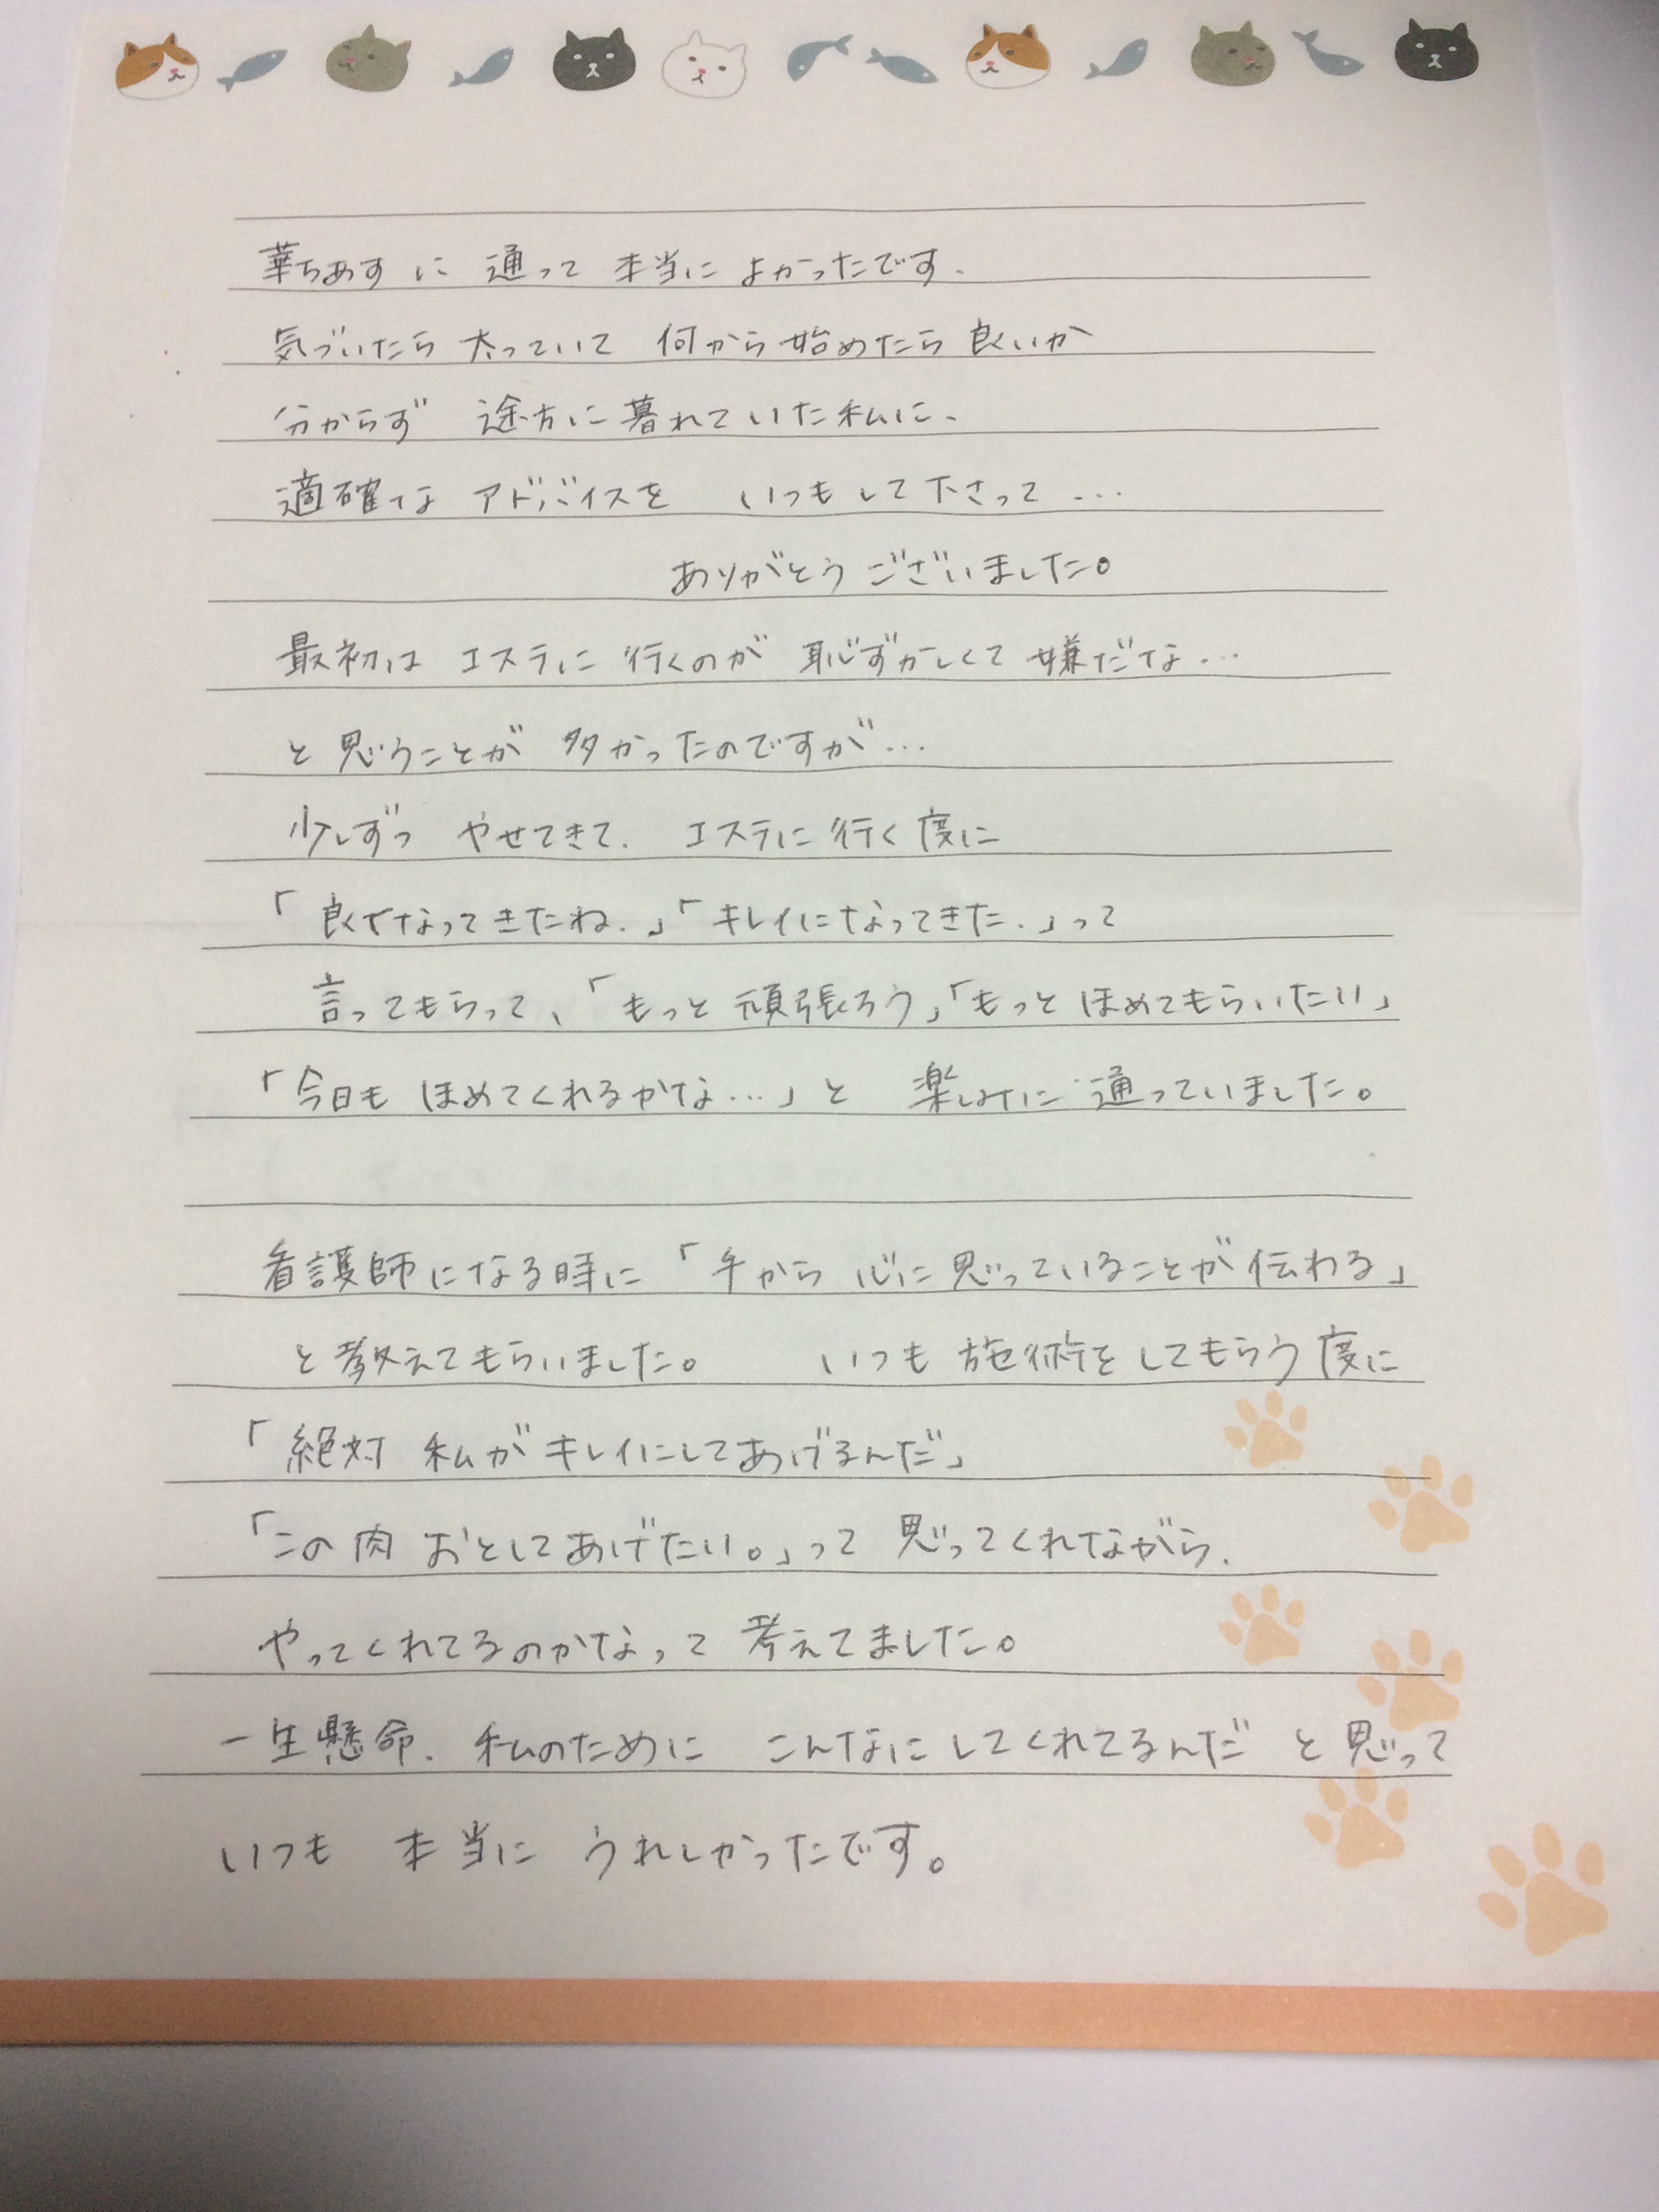 華ちあすに 通って 本当に よかったです.
気づいたら 太っていて 何から始めたら 良いか
分からず 途方に暮れていた私に、
適確な アドバイスを いつもして下さって...
ありがとうございました。
最初は エステに 行くのが 恥ずかしくて 嫌だな...
と思うことが 多かったのですが...
少しずつ やせてきて. エステに行く度に
「良くなってきたね.」「キレイになってきた.」って
言ってもらって、「もっと頑張ろう」「もっと ほめてもらいたい」
「今日も ほめてくれるかな...」と 楽しみに 通っていました。
看護師になる時に「手から 心に思っていることが伝わる」
と教えてもらいました。 いつも 施術をしてもらう度に
「絶対 私がキレイにしてあげるんだ」
「この肉 おとしてあげたい。」って 思ってくれながら.
やってくれてるのかなって 考えてました。
一生懸命. 私のために こんなにしてくれてるんだ と思って
いつも 本当に うれしかったです。